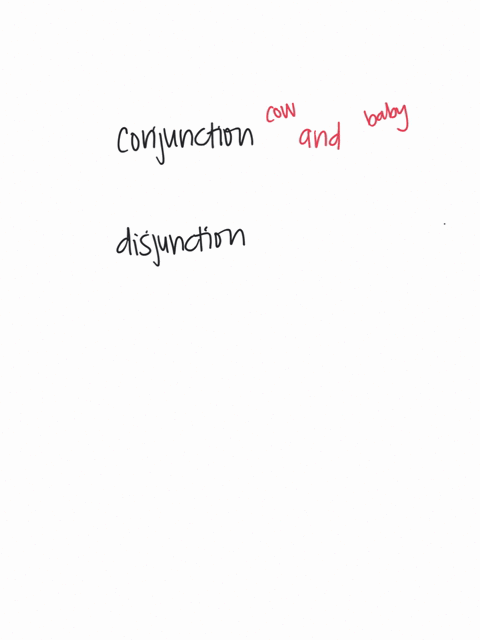 conjunction cow and baby
disjunction